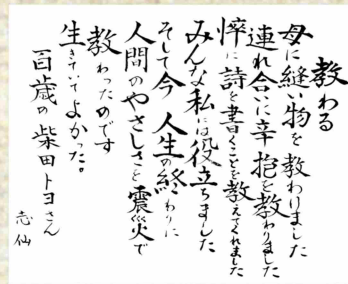 教わる
母に縫い物を教わりました
連れ合いに辛抱を教わりました
悴に詩を書くことを教えてくれました
みんな私には役立ちました
そして今人生の終わりに
人間のやさしさを震災で
教わったのです
生きていてよかった。
百歳の柴田トヨさん
志仙